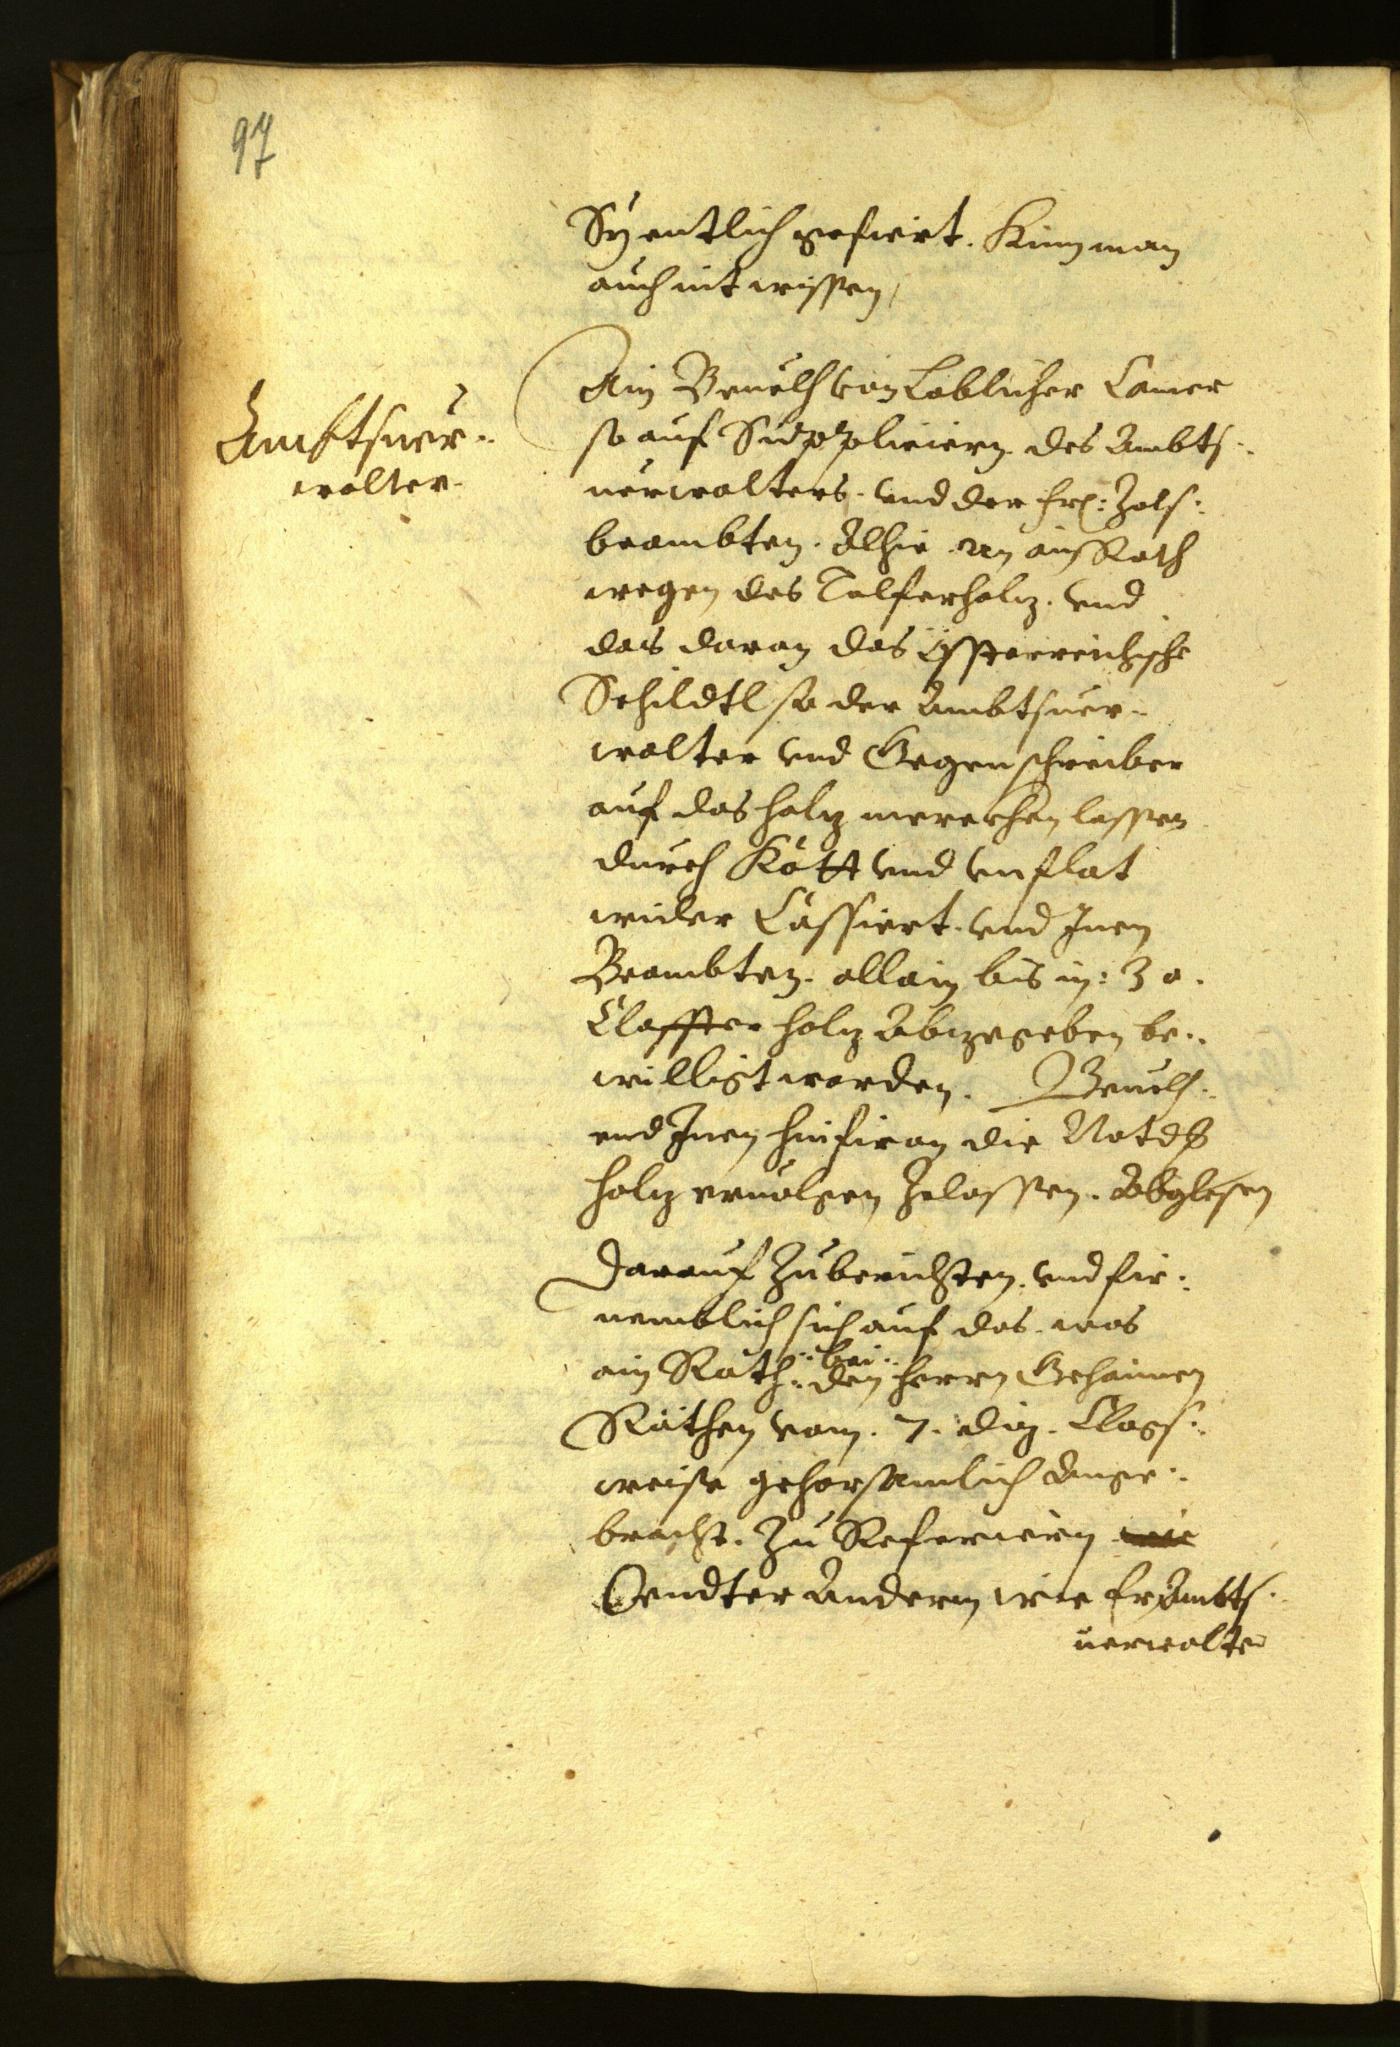 97
Sy entlich gefiert. Kinn man
auch nit wissen,
Ambtsver-
walter.
Ain Beuelh von Loblicher Camer
so auf Suppliciern des Ambts-
uerwalters. vnd der frl: Zols:
beambten. Alhie an ain Rath
wegen des Talferholz. vnd
das daran das Össterreichische
Schildtl so der Ambtsuer-
walter vnd Gegenschreiber
auf das holz merckhen lassen
durch Kott vnd vnflat
wider Cassiert. vnd Inen
Beambten. allain bis in: 30.
Claffter holz Abzegeben be-
willigt worden. Beuelh.
vnd Inen hinfiran die Notd
holz eruolgen Zelassen. Abglesen
Darauf Zuberichten. vnd fir-
nemblich sich auf das. was
ain Rath: bei den herrn Gehaimen
Räthen vom. 7. diz. Clags-
weise gehorsamlich Ange-
bracht. Zu Referiern wie
Vendter Anderm wie Er Ambts-
uerwalter